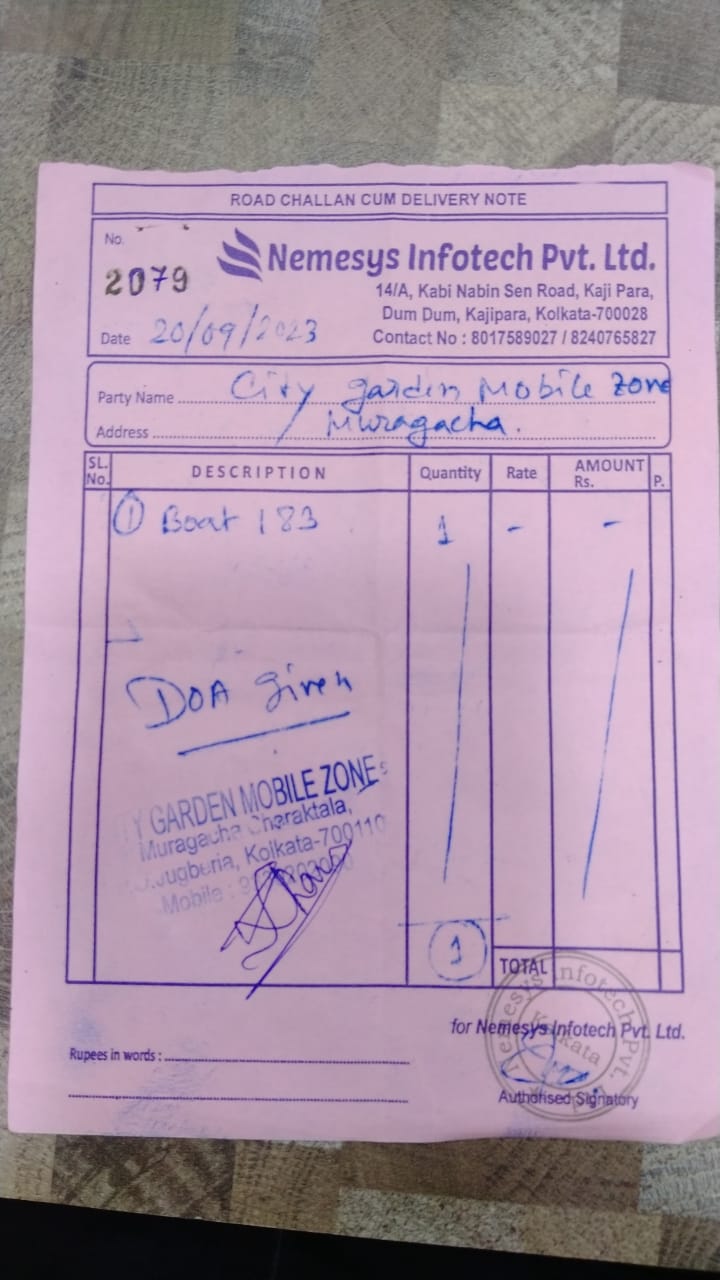 ROAD CHALLAN CUM DELIVERY NOTE
No.
2079
Nemesys Infotech Pvt. Ltd.
14/A, Kabi Nabin Sen Road, Kaji Para,
Dum Dum, Kajipara, Kolkata-700028
Contact No : 8017589027 / 8240765827
Date 20/09/2023
Party Name City garden Mobile Zone
Address Muragacha.
SL. No. DESCRIPTION Quantity Rate AMOUNT Rs. P.
① Boat 183 1 - -
DOA given
Y GARDEN MOBILE ZONE
Muragacha Charaktala,
Kolkata-700110
Mobile :
1
TOTAL
for Nemesys Infotech Pvt. Ltd.
Nemesys Infotech Pvt.
Kolkata
Rupees in words :
Authorised Signatory